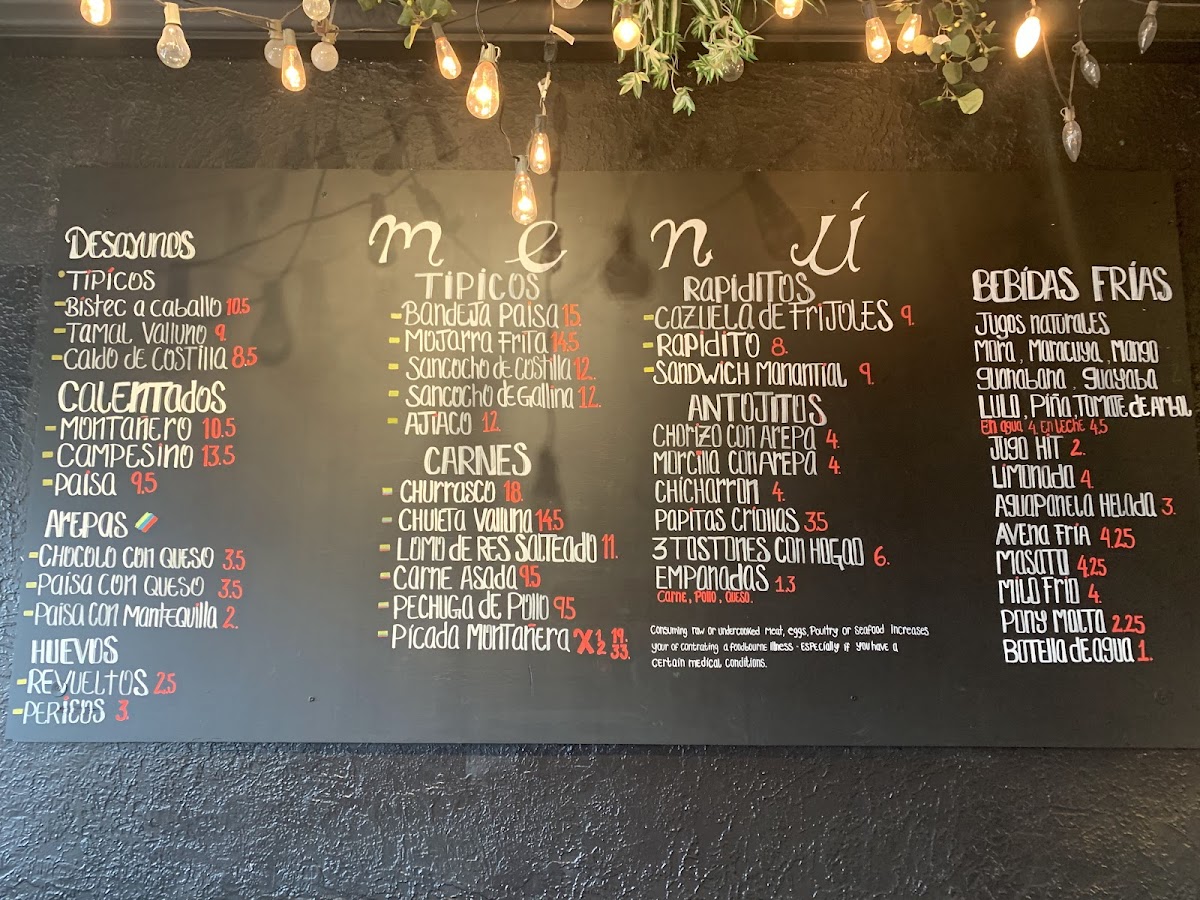 menú
Desayunos
Típicos
Bistec a caballo 10.5
Tamal Valluno 9.
Caldo de costilla 8.5
Calentados
Montañero 10.5
Campesino 13.5
Paisa 9.5
Arepas
Chocolo con queso 3.5
Paisa con queso 3.5
Paisa con Mantequilla 2.
Huevos
Revueltos 2.5
Pericos 3.
Típicos
Bandeja Paisa 15.
Mojarra Frita 14.5
Sancocho de Costilla 12.
Sancocho de Gallina 12.
Ajiaco 12.
Carnes
Churrasco 18.
Chuleta Valluna 14.5
Lomo de res salteado 11.
Carne Asada 9.5
Pechuga de Pollo 9.5
Picada Montañera x 1 19.
2 33.
Rapiditos
Cazuela de Frijoles 9.
Rapidito 8.
Sandwich Manantial 9.
Antojitos
Chorizo con Arepa 4.
Morcilla con Arepa 4.
Chicharron 4.
Papitas Criollas 3.5
3 Tostones con Hogao 6.
Empanadas 1.3
Carne, Pollo, Queso.
Consuming raw or undercooked meat, eggs, Poultry or Seafood increases
your of contrating a foodbourne illness - especially if you have a
certain medical conditions.
Bebídas Frías
Jugos naturales
Mora, Maracuya, Mango
guanabana, guayaba
Lulo, Piña, Tomate de Arbol
En agua 4. En leche 4.5
Jugo Hit 2.
Limonada 4.
Aguapanela Helada 3.
Avena Fría 4.25
Masato 4.25
Milo Frio 4.
Pony Malta 2.25
Botella de agua 1.